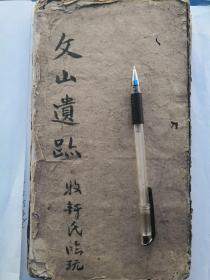 文山遺跡
牧軒氏臨玩